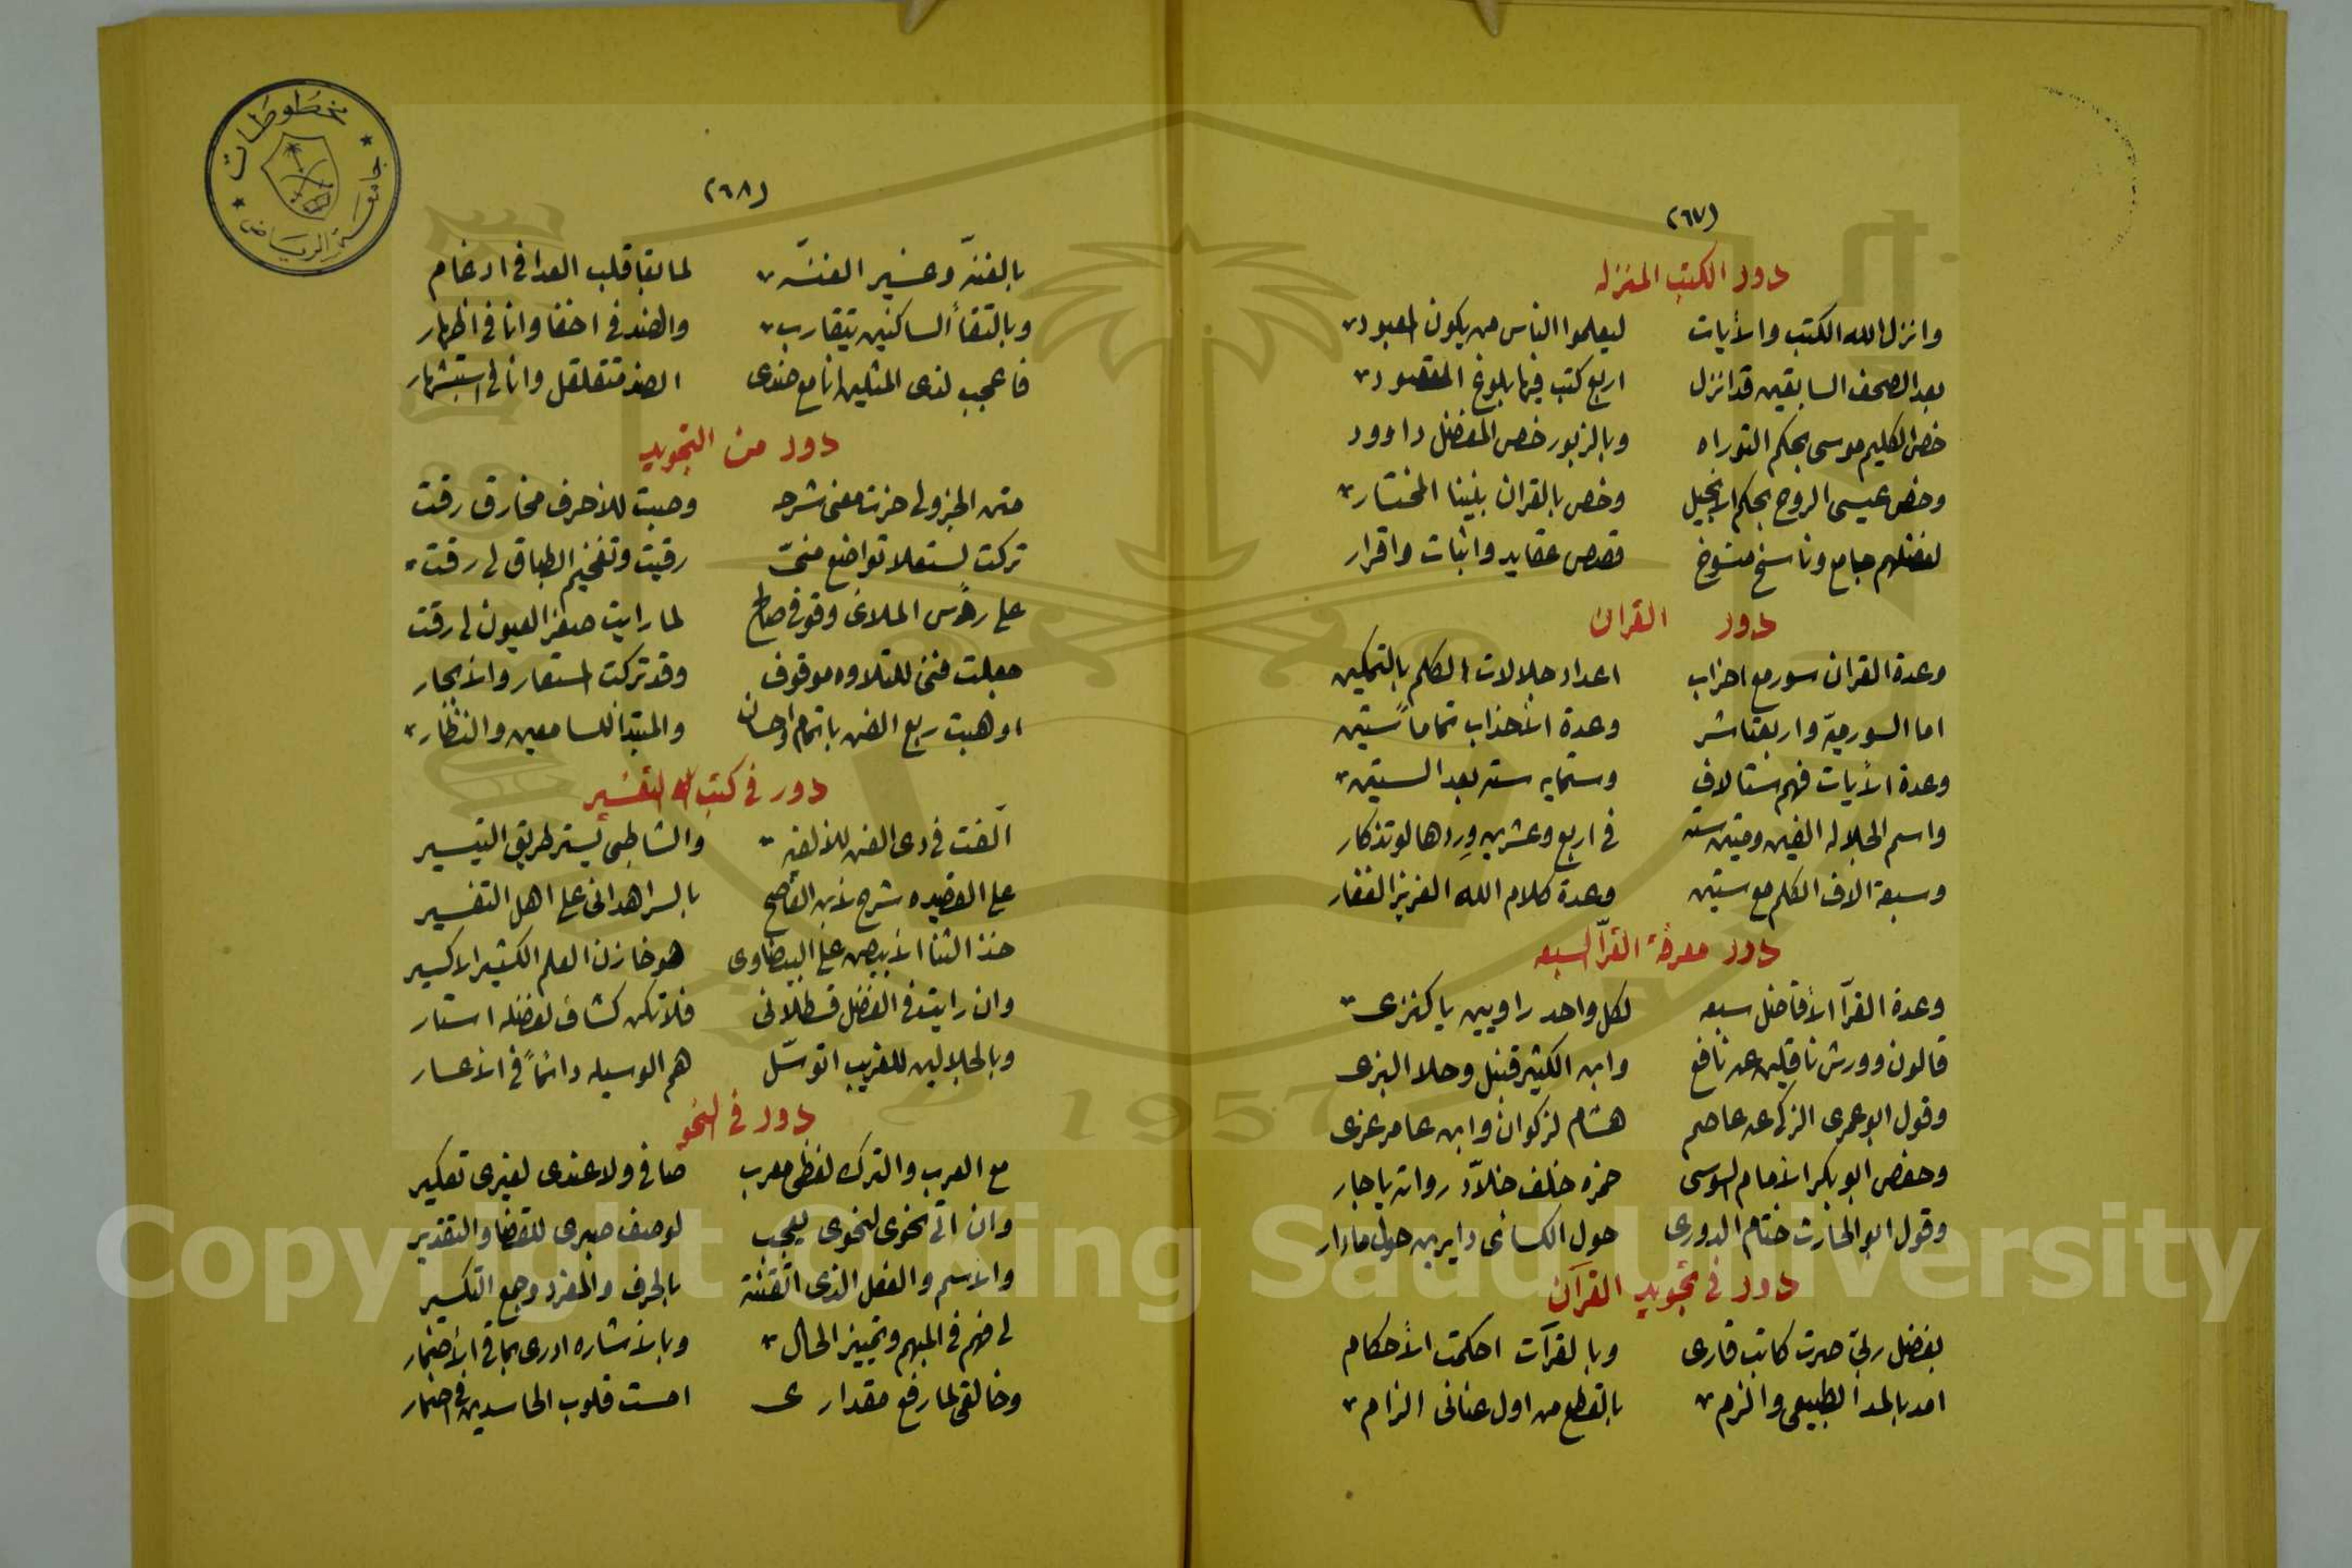 (٦٧)
دور الكتب المنزله
وانزل الله الكتب والأيات ليعلموا الناس من يكون المعبود
بعد الصحف السابقين قد انزل اربع كتب فيها بلوغ المقصود
خص الكليم موسى بحكم التوراه وبالزبور خص المفضل داوود
وخص عيسى الروح بحكم الانجيل وخص بالقران نبينا المختار
لفضلهم جامع وناسخ منسوخ قصص عقايد واثبات واقرار
دور القران
وعدة القران سور مع احزاب اعداد جلالات الكلم بالتمكين
اما السور ميّه واربعتاشر وعدة الأحذاب تماماً ستين
وعدة الأيات فهم ستالاف وستمايه سته بعد الستين
واسم الجلاله الفين وميتين سته في اربع وعشرين وردها لو تذكار
وسبعة الاف الكلم مع ستين وعدة كلام الله العزيز الغفار
دور معرفة القرآ السبعه
وعدة القرآ الأفاضل سبعه لكل واحد راويين يا كنزى
قالون وورش ناقلين عن نافع وابن الكثير قنبل وحلا البزى
وقول ابو عمرى الزكى عن عاصم هشام لزكوان وابن عامر عزى
وحفص ابو بكر الأمام السوسى حمزه خلف خلاّد رواته يا جار
وقول ابو الحارث ختام الدورى حول الكسائى دايرين حول مادار
دور في تجويد القرآن
بفضل ربّي صرت كاتب قارى وبالقرآت احكمت الأحكام
امد بالمد الطبيعى والزم بالقطع من اول عنانى الزام
(٦٨)
بالغنّه وغير الغنّه لما بقا قلب العدا في ادغام
وبالتقأ الساكنين يتقارب والضد في اخفا وانا في اظهار
فاعجب لذى المثلين انا مع ضدى الضد متقلقل وانا لى استبشار
دور من التجويد
متن الجزولى حزت معنى شرحه وصبت للأحرف مخارق رقت
تركت لستعلا تواضع منىّ رقيت وتفخيم الطباق لى رقت
على رؤس الملائى وقوفى صالح لما رايت صفر العيون لى رقت
جعلت فنى للتلاوه موقوف وقد تركت لستعار والأبحار
اوهبت ربع الفن باتمام واحسان والمبتدأ للسامعين والنظّار
دور في كتب التفسير
آلفت في دى الفن للألفيه والشاطبى يسّر طريق التيسير
على القصيده شرح لأبن القاصح بالسر اهدانى على اهل التفسير
خذ الثنا الأبيض على البيضاوى هو خازن العلم الكثير الاكسير
وان رايت في الفضل قسطلانى فلا تكن كشاف لفضله استار
وبالجلالين للقريب اتوسّل هم الوسيله دائماً في الأعسار
دور في النحو
مع العرب والترك لفظى معرب صافى ولا عندى لغيرى تعكير
وان اتى نحوى لنحوى يعجب لوصف صبرى للقضا والتقدير
والأسم والفعل الذى اتقنته بالحرف والمفرد وجمع التكسير
لى فهم في المبهم وتمييز الحال وبالأشاره ادرى بما في الأضمار
وخالقى لما رفع مقدارى امست قلوب الحاسدين في اضمار
مخطوطات
جامعة الرياض
1957
Copyright © King Saud University